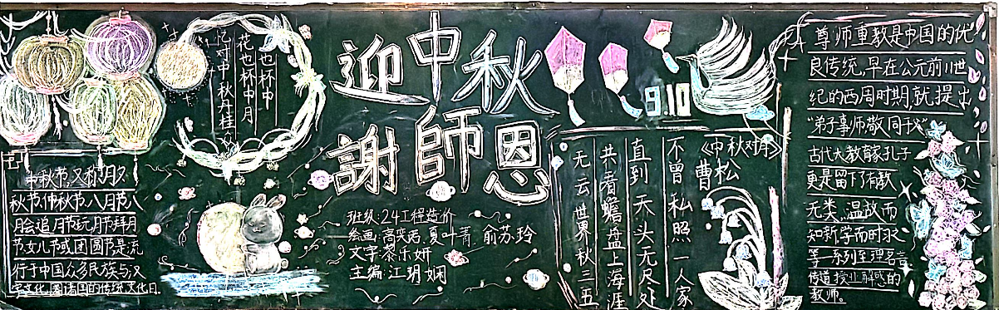 忆对中秋丹桂丛
花也杯中月
也杯中
迎中秋
謝師恩
中秋节,又称月夕
秋节、仲秋节、八月节、八
月会、追月节、玩月节、拜月
节、女儿节或团圆节,是流
行于中国众多民族与汉
字文化圈诸国的传统文化日.
班级:24工程造价
绘画:高奕诺、夏叶菁、俞苏玲
文字:黎乐妍
主编:江玥娴
9.10
《中秋对月》
曹松
无云世界秋三五
共看蟾盘上海涯
直到天头无尽处
不曾私照一人家
尊师重教是中国的优
良传统,早在公元前11世
纪的西周时期,就提出
“弟子事师,敬同于父”
古代大教育家孔子
更是留下了有教
无类,温故而
知新,学而时习
等一系列至理名言
传道授业解惑的
教师。